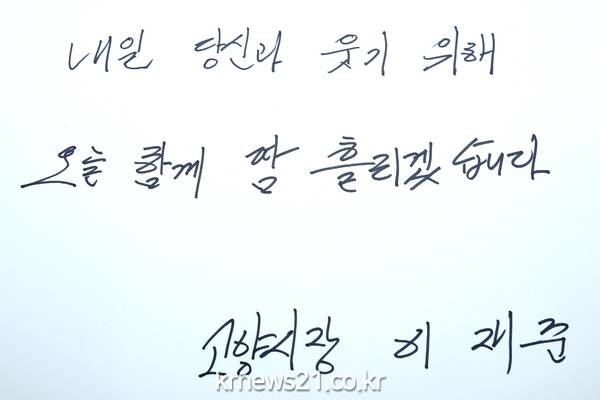 내일 당신과 웃기 위해
오늘 함께 땀 흘리겠습니다
고양시장 이재준
krnews21.co.kr